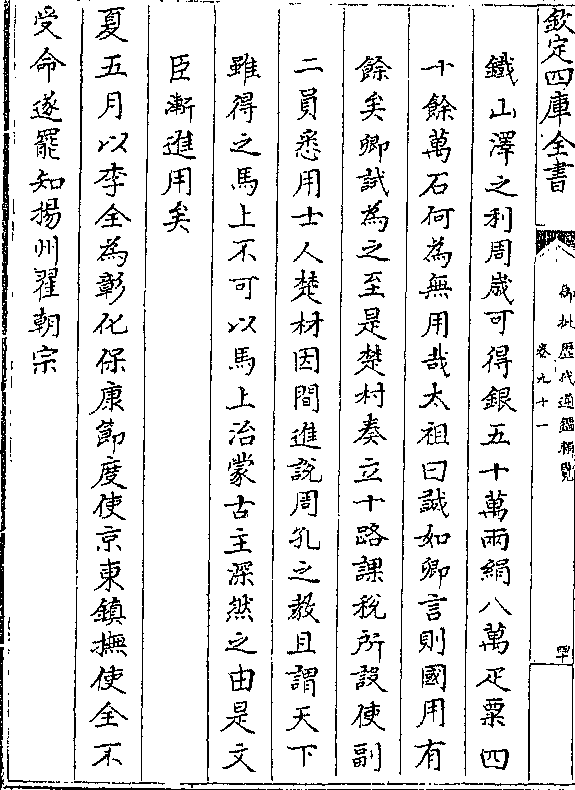 欽定四庫全書
御批歷代通鑑輯覽
卷九十一
罕
鐵山澤之利周歲可得銀五十萬兩絹八萬疋粟四
十餘萬石何為無用哉太祖曰誠如卿言則國用有
餘矣卿試為之至是楚材奏立十路課稅所設使副
二員悉用士人楚材因間進說周孔之教且謂天下
雖得之馬上不可以馬上治蒙古主深然之由是文
臣漸進用矣
夏五月以李全為彰化保康節度使京東鎮撫使全不
受命遂罷知揚州翟朝宗